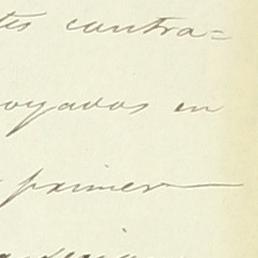 tes contra=
oyados en
primer